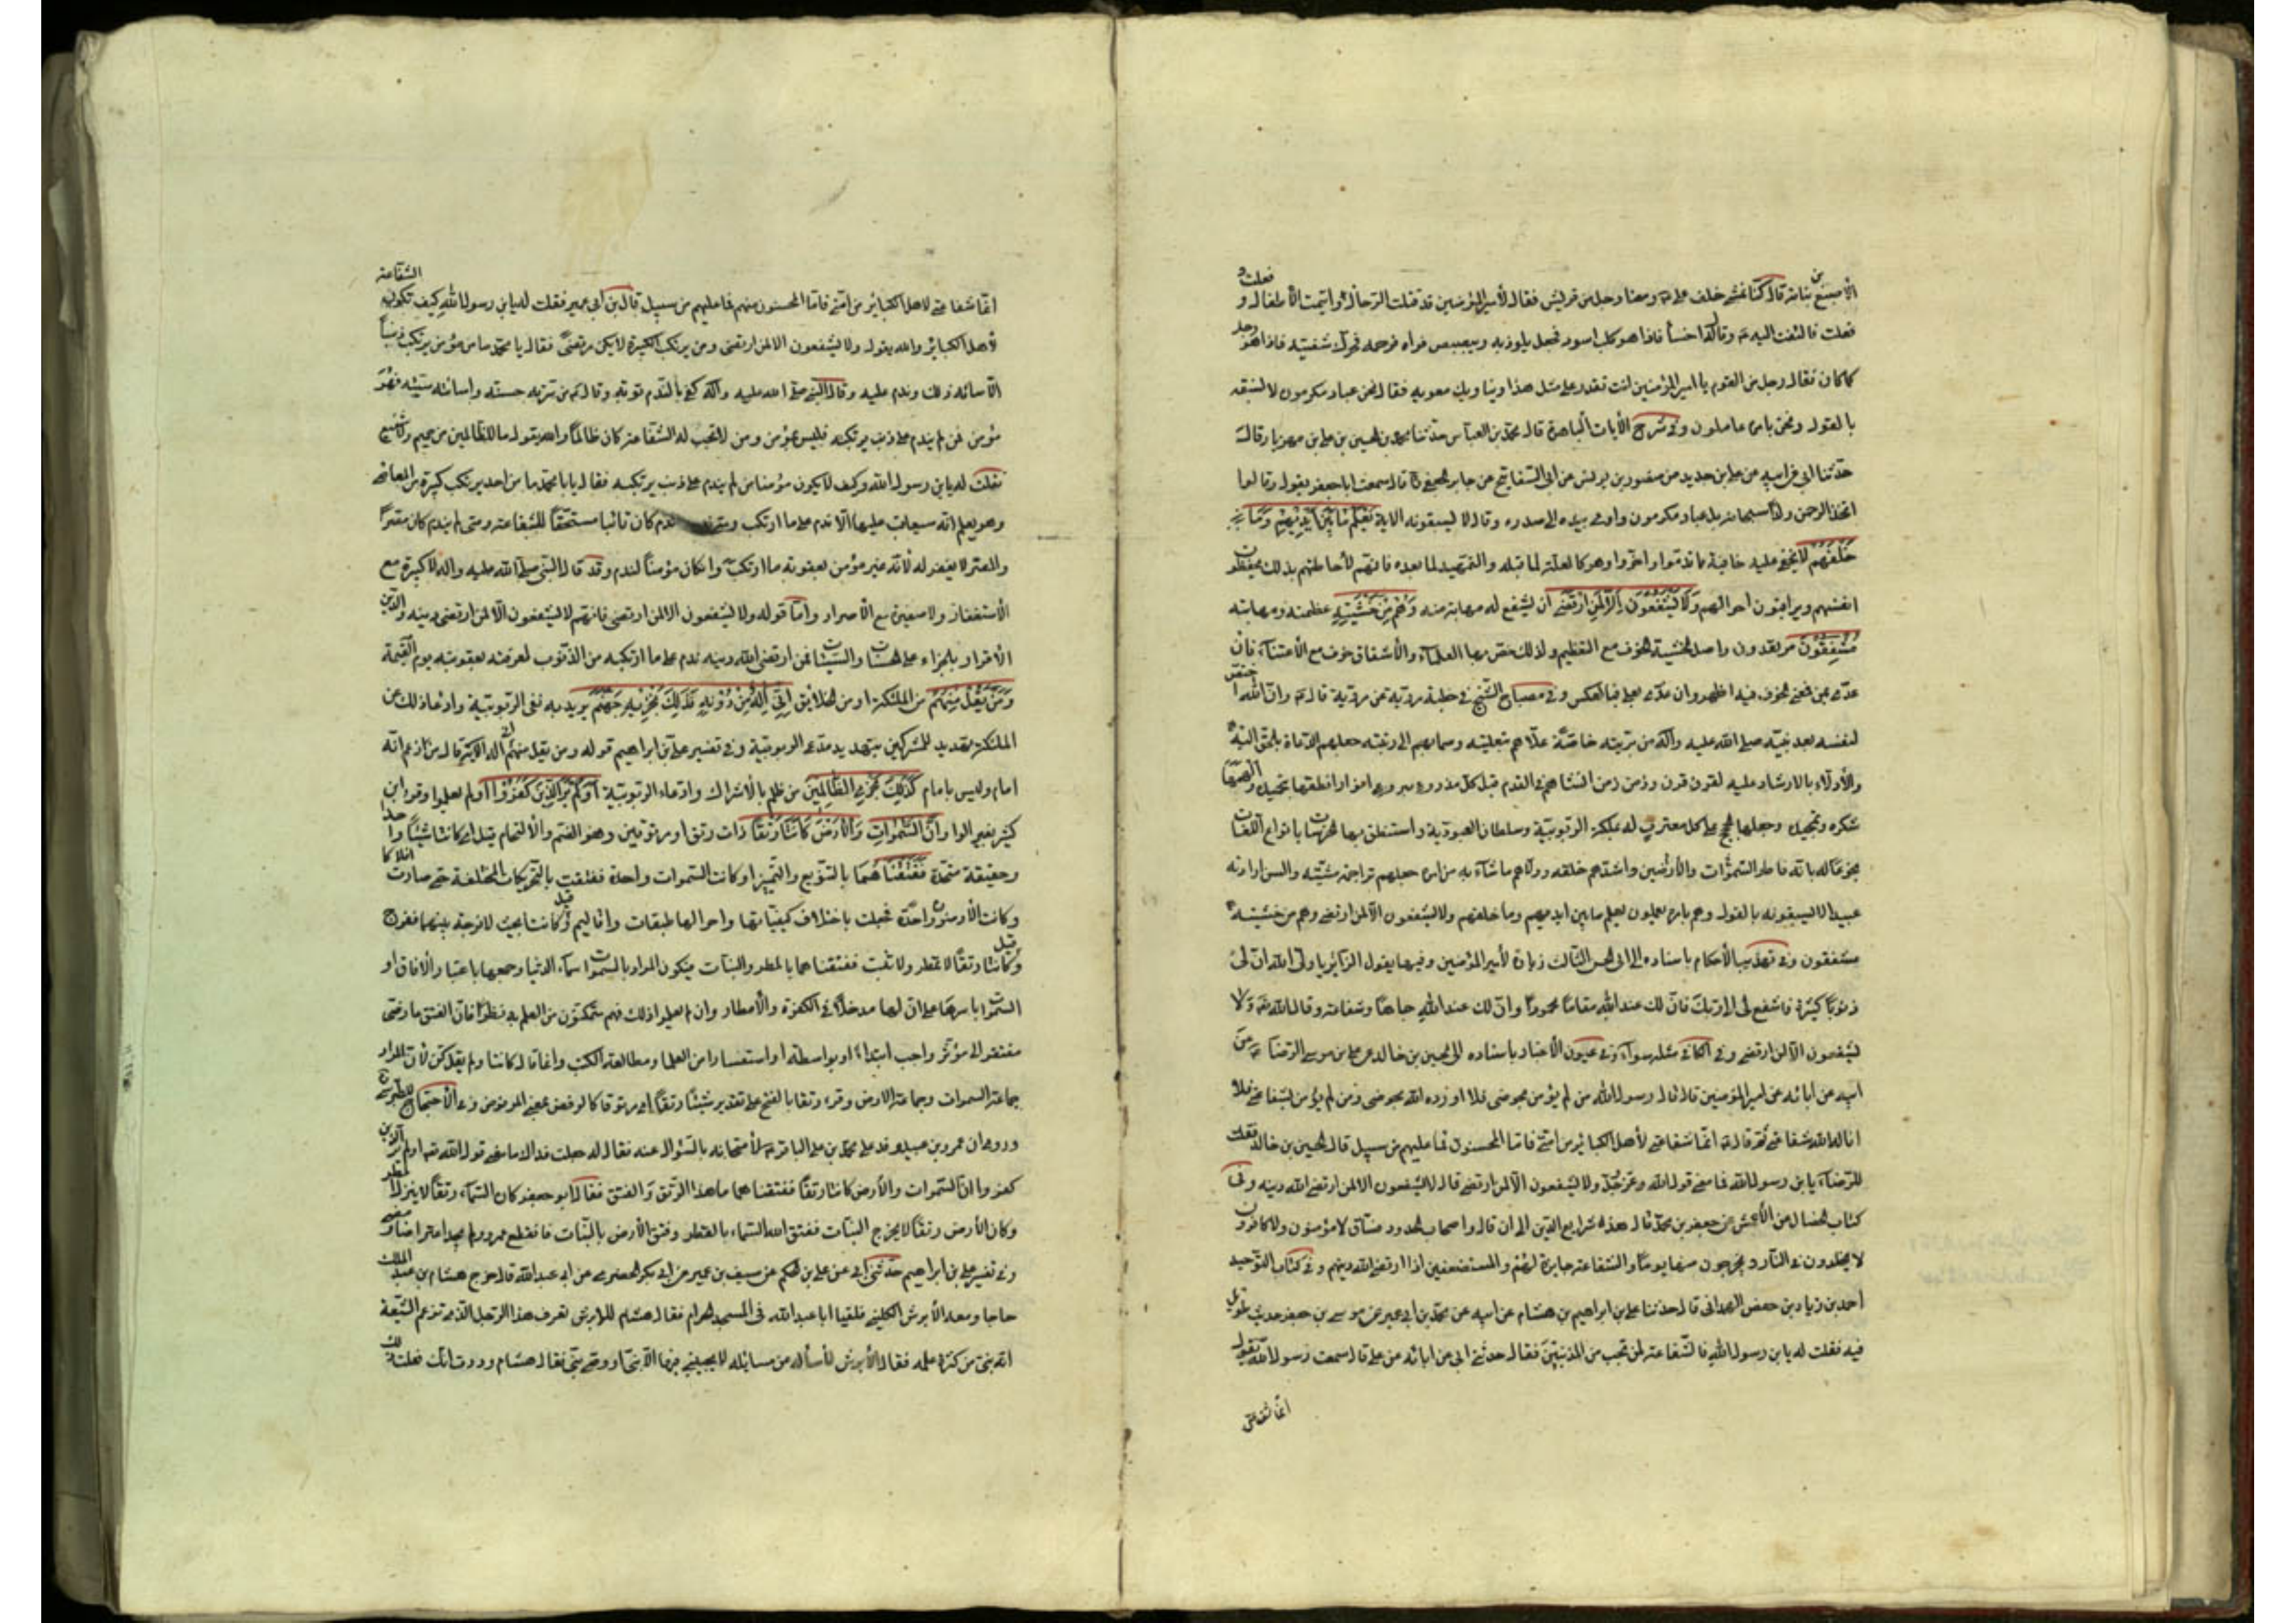 الأصبغ بن نباته قال كنا نمشى خلف على ع ومعنا رجل من قريش فقال لأمير المؤمنين قد قتلت الرجال وايتمت الأطفال و فعلت و
فعلت فالتفت اليه ع وقال له اخسأ فاذا هو كلب اسود فجعل يلوذ به ويبصبص فرآه فرحمه فحرك شفتيه فاذا هو رجل
كما كان فقال رجل من القوم يا امير المؤمنين انت تقدر على مثل هذا ويناويك معوية فقال نحن عباد مكرمون لا نسبقه
بالقول ونحن بامره عاملون وفى شرح الآيات الباهرة قال محمد بن العباس حدثنا محمد بن الحسين بن على بن مهزيار قال
حدثنا ابى عن ابيه عن على بن حديد عن منصور بن يونس عن ابى السفاتج عن جابر الجعفى قال سمعت ابا جعفر يقول وقالوا
اتخذ الرحمن ولدا سبحانه بل عباد مكرمون واومى بيده الى صدره وقال لا يسبقونه الاية يَعْلَمُ مَا بَيْنَ أَيْدِيهِمْ وَمَا
خَلْفَهُمْ لا يخفى عليه خافية ما قدموا واخروا وهو كالعلة لما قبله والتمهيد لما بعده فانهم لأحاطتهم بذلك يضبطون
انفسهم ويراقبون احوالهم وَلَا يَشْفَعُونَ إِلَّا لِمَنِ ارْتَضَى أن يشفع له مهابة منه وَهُمْ مِنْ خَشْيَتِهِ عظمته ومهابته
مُشْفِقُونَ مرتعدون واصل الخشية خوف مع التعظيم ولذلك خص بها العلمآء والأشفاق خوف مع الأعتناء فان
عدى بمن فمعنى الخوف فيه اظهر وان عدى بعلى فبالعكس وفى مصباح الشيخ فى خطبة مروية عن ع قال ع وان الله اختص
لنفسه بعد نبيه صلى الله عليه وآله من بريته خاصة علاهم بتعليته وسما بهم الى رتبته جعلهم الدعاة بالحق اليه
والأدلاء بالارشاد عليه لقرن قرن وزمن زمن انشاهم فى القدم قبل كل مذروء ومبروء انوارا انطقها بتحميده والهمها
شكره وتمجيده وجعلها الحجج على كل معترف له بملكة الربوبية وسلطان العبودية واستنطق بها الخرسات بانواع اللغات
بخوعا له بانه فاطر السموات والأرضين واشهدهم خلقه وولاهم ماشآء من امره جعلهم تراجم مشيته والسن ارادته
عبيدا لا يسبقونه بالقول وهم بامره يعملون يعلم ما بين ايديهم وما خلفهم ولا يشفعون الا لمن ارتضى وهم من خشيته
مشفقون وفى تهذيب الأحكام باسناده الى ابى الحسن الثالث زيارة لأمير المؤمنين وفيها يقول الزائر يا ولى الله ان لى
ذنوبا كثيرة فاشفع لى الى ربك فان لك عند الله مقاما محمودا وان لك عند الله جاها وشفاعة وقال الله تعـ ولا
يشفعون الا لمن ارتضى وفى الكافى مثله سوآء وفى عيون الأخبار باسناده الى الحسين بن خالد عن على بن موسى الرضا ع عن
ابيه عن آبائه عن امير المؤمنين قال قال رسول الله من لم يؤمن بحوضى فلا اورده الله بحوضى ومن لم يؤمن بشفاعتى فلا
اناله الله شفاعتى ثم قال ع انما شفاعتى لأهل الكبائر من امتى فاما المحسنون فما عليهم من سبيل قال الحسين بن خالد فقلت
للرضا ع يابن رسول الله فما معنى قول الله وعز وجل ولا يشفعون الا لمن ارتضى قال لا يشفعون الا لمن ارتضى الله دينه وفى
كتاب الخصال عن الأعمش عن جعفر بن محمد قال هذه شرايع الدين الى ان قال واصحاب الحدود فساق لا مؤمنون ولا كافرون
لا يخلدون فى النار ويخرجون منها يوما والشفاعة جايزة لهم والمستضعفين اذا ارتضى الله دينهم وفى كتاب التوحيد
احمد بن زياد بن جعفر الهمدانى قال حدثنا على بن ابراهيم بن هشام عن ابيه عن محمد بن ابى عمير عن موسى بن جعفر حديث طويل
فيه فقلت له يا ابن رسول الله فالشفاعة لمن تجب من المذنبين فقال حدثنى ابى عن ابائه عن على قال سمعت رسول الله يقول
انما شفاعتى
انما شفاعتى لاهل الكبائر من امتى فاما المحسنون منهم فما عليهم من سبيل قال بن ابى عمير فقلت له يابن رسول الله كيف تكون الشفاعة
لأهل الكبائر والله يقول ولا يشفعون الا لمن ارتضى ومن يرتكب الكبيرة لا يكن مرتضى فقال يا محمد ما من مؤمن يرتكب ذنبا
الا ساءه ذلك وندم عليه وقال النبى صلى الله عليه وآله كفى بالندم توبة وقال ع من سرته حسنته واسائته سيئته فهو
مؤمن فمن لم يندم على ذنب يرتكبه فليس بمؤمن ومن لا تجب له الشفاعة كان ظالما والله يقول ما للظالمين من حميم ولا شفيع
فقلت له يابن رسول الله وكيف لا يكون مؤمنا من لم يندم على ذنب يرتكبه فقال يا با محمد ما من احد يرتكب كبيرة من المعاصى
وهو يعلم انه سيعاقب عليها الا ندم على ما ارتكب ومتى ندم كان تائبا مستحقا للشفاعة ومتى لم يندم كان مصرا
والمصر لا يغفر له لأنه غير مؤمن بعقوبة ما ارتكب ولو كان مؤمنا لندم وقد قال النبى صلى الله عليه واله لا كبيرة مع
الأستغفار ولا صغيرة مع الأصرار واما قوله ولا يشفعون الا لمن ارتضى فانهم لا يشفعون الا لمن ارتضى دينه والدين
الأقرار بالجزاء على الحسنات والسيئات فمن ارتضى الله دينه ندم على ما ارتكبه من الذنوب لمعرفته بعقوبته يوم القيمة
وَمَنْ يَقُلْ مِنْهُمْ من الملئكة او من الخلائق إِنِّي إِلَهٌ مِنْ دُونِهِ فَذَلِكَ نَجْزِيهِ جَهَنَّمَ يريد به نفى الربوبية وادعاء ذلك عن
الملئكة وتهديد المشركين بتهديد مدعى الربوبية وفى تفسير على بن ابراهيم قوله ومن يقل منهم انى اله الاية قال من زعم انه
امام وليس بامام كَذَلِكَ نَجْزِي الظَّالِمِينَ من ظلم بالأشراك وادعاء الربوبية أَوَلَمْ يَرَ الَّذِينَ كَفَرُوا أولم يعلموا وقرء ابن
كثير بغير الواو أَنَّ السَّمَوَاتِ وَالْأَرْضَ كَانَتَا رَتْقًا ذات رتق او مرتوقتين وهو الضم والألتحام قبل اى كانتا شيئا واحدا
وحقيقة متحدة فَفَتَقْنَاهُمَا بالتنويع والتميز او كانت السموات واحدة ففتقت بالتحريكات المختلفة حتى صارت افلاكا
وكانت الأرضون واحدة فجعلت باختلاف كيفياتها واحوالها طبقات واقاليم وقيل كانتا بحيث لا فرجة بينهما ففرج
وقيل كانتا رتقا لا تمطر ولا تنبت ففتقناهما بالمطر والنبات فيكون المراد بالسموات سمآء الدنيا وجمعها باعتبار الافاق او
السموات باسرها على ان لها مدخلا فى الأمطار والكفرة وان لم يعلموا ذلك فهم متمكنون من العلم به نظرا فان الفتق عارض
مفتقر الى مؤثر واجب ابتداء او بواسطة او استفسارا من العلما ومطالعة الكتب وانما قال كانتا ولم يقل كن لأن المراد
جماعة السموات وجماعة الارض وقرء رتقا بالفتح على تقدير شيئا رتقا اى مرتوقا كالرفض بمعنى المرفوض وفى الأحتجاج للطبرسى
وروى ان عمرو بن عبيد وفد على محمد بن على الباقر ع لأمتحانه بالسؤال عنه فقال له جعلت فداك ما معنى قول الله تعـ اولم ير الذين
كفروا ان السموات والأرض كانتا رتقا ففتقناهما ما هذا الرتق والفتق فقال ابو جعفر كان السمآء رتقا لا ينزل القطر
وكان الأرض رتقا لا يخرج النبات ففتق الله السماء بالقطر وفتق الأرض بالنبات فانقطع عمرو ولم يجد اعتراضا ومضى
وفى تفسير على بن ابراهيم حدثنى ابى عن على بن الحكم عن سيف بن عميرة عن ابى بكر الحضرمى عن ابى عبد الله قال خرج هشام بن عبد الملك
حاجا ومعه الأبرش الكلبى فلقيا ابا عبد الله فى المسجد الحرام فقال هشام للابرش تعرف هذا الرجل الذى تزعم الشيعة
انه نبى من كثرة علمه فقال الأبرش لأسألنه من مسائله لا يجيبنى فيها الا نبى او وصى نبى فقال هشام وددت انك فعلت ذلك